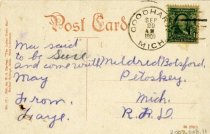 Post Card
GOODHA
SEP
AM
1909
MICH
Mu said
to be sure
and come will
May
From
Faye.
Mildred Botsford,
Petoskey,
Mich.
R.R.D